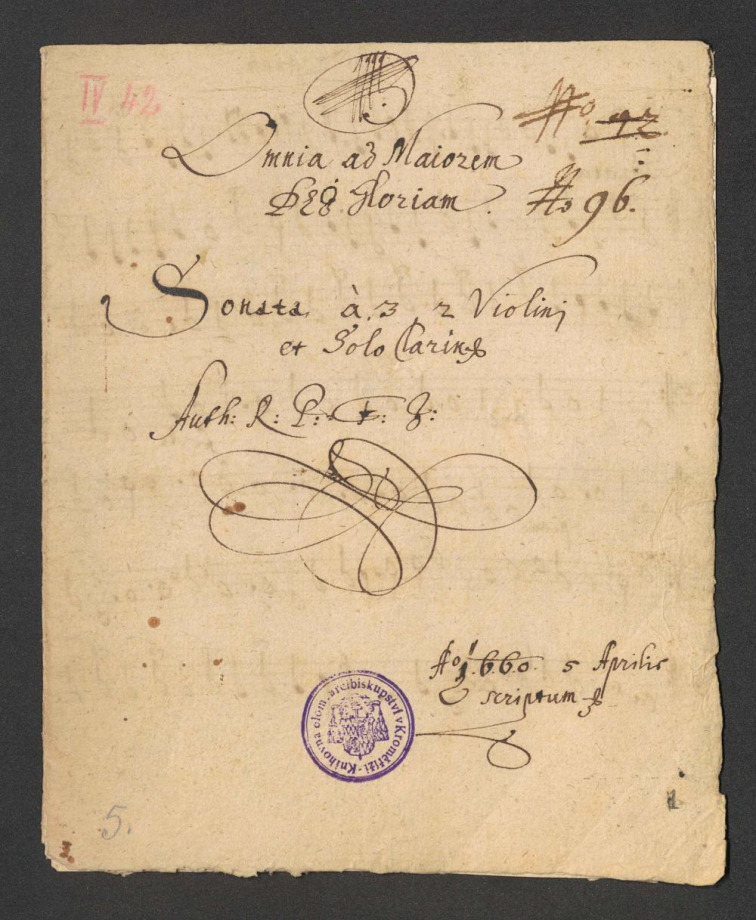 IV 42
No 92
Omnia ad Maiorem
DEO Gloriam. No 96.
Sonata à 3, 2 Violini
et Solo Clarin
Auth: R: P:
Ao 1660 5 Aprilis
scriptum
Knihovna olom. arcibiskupství v Kroměříži
5.
1